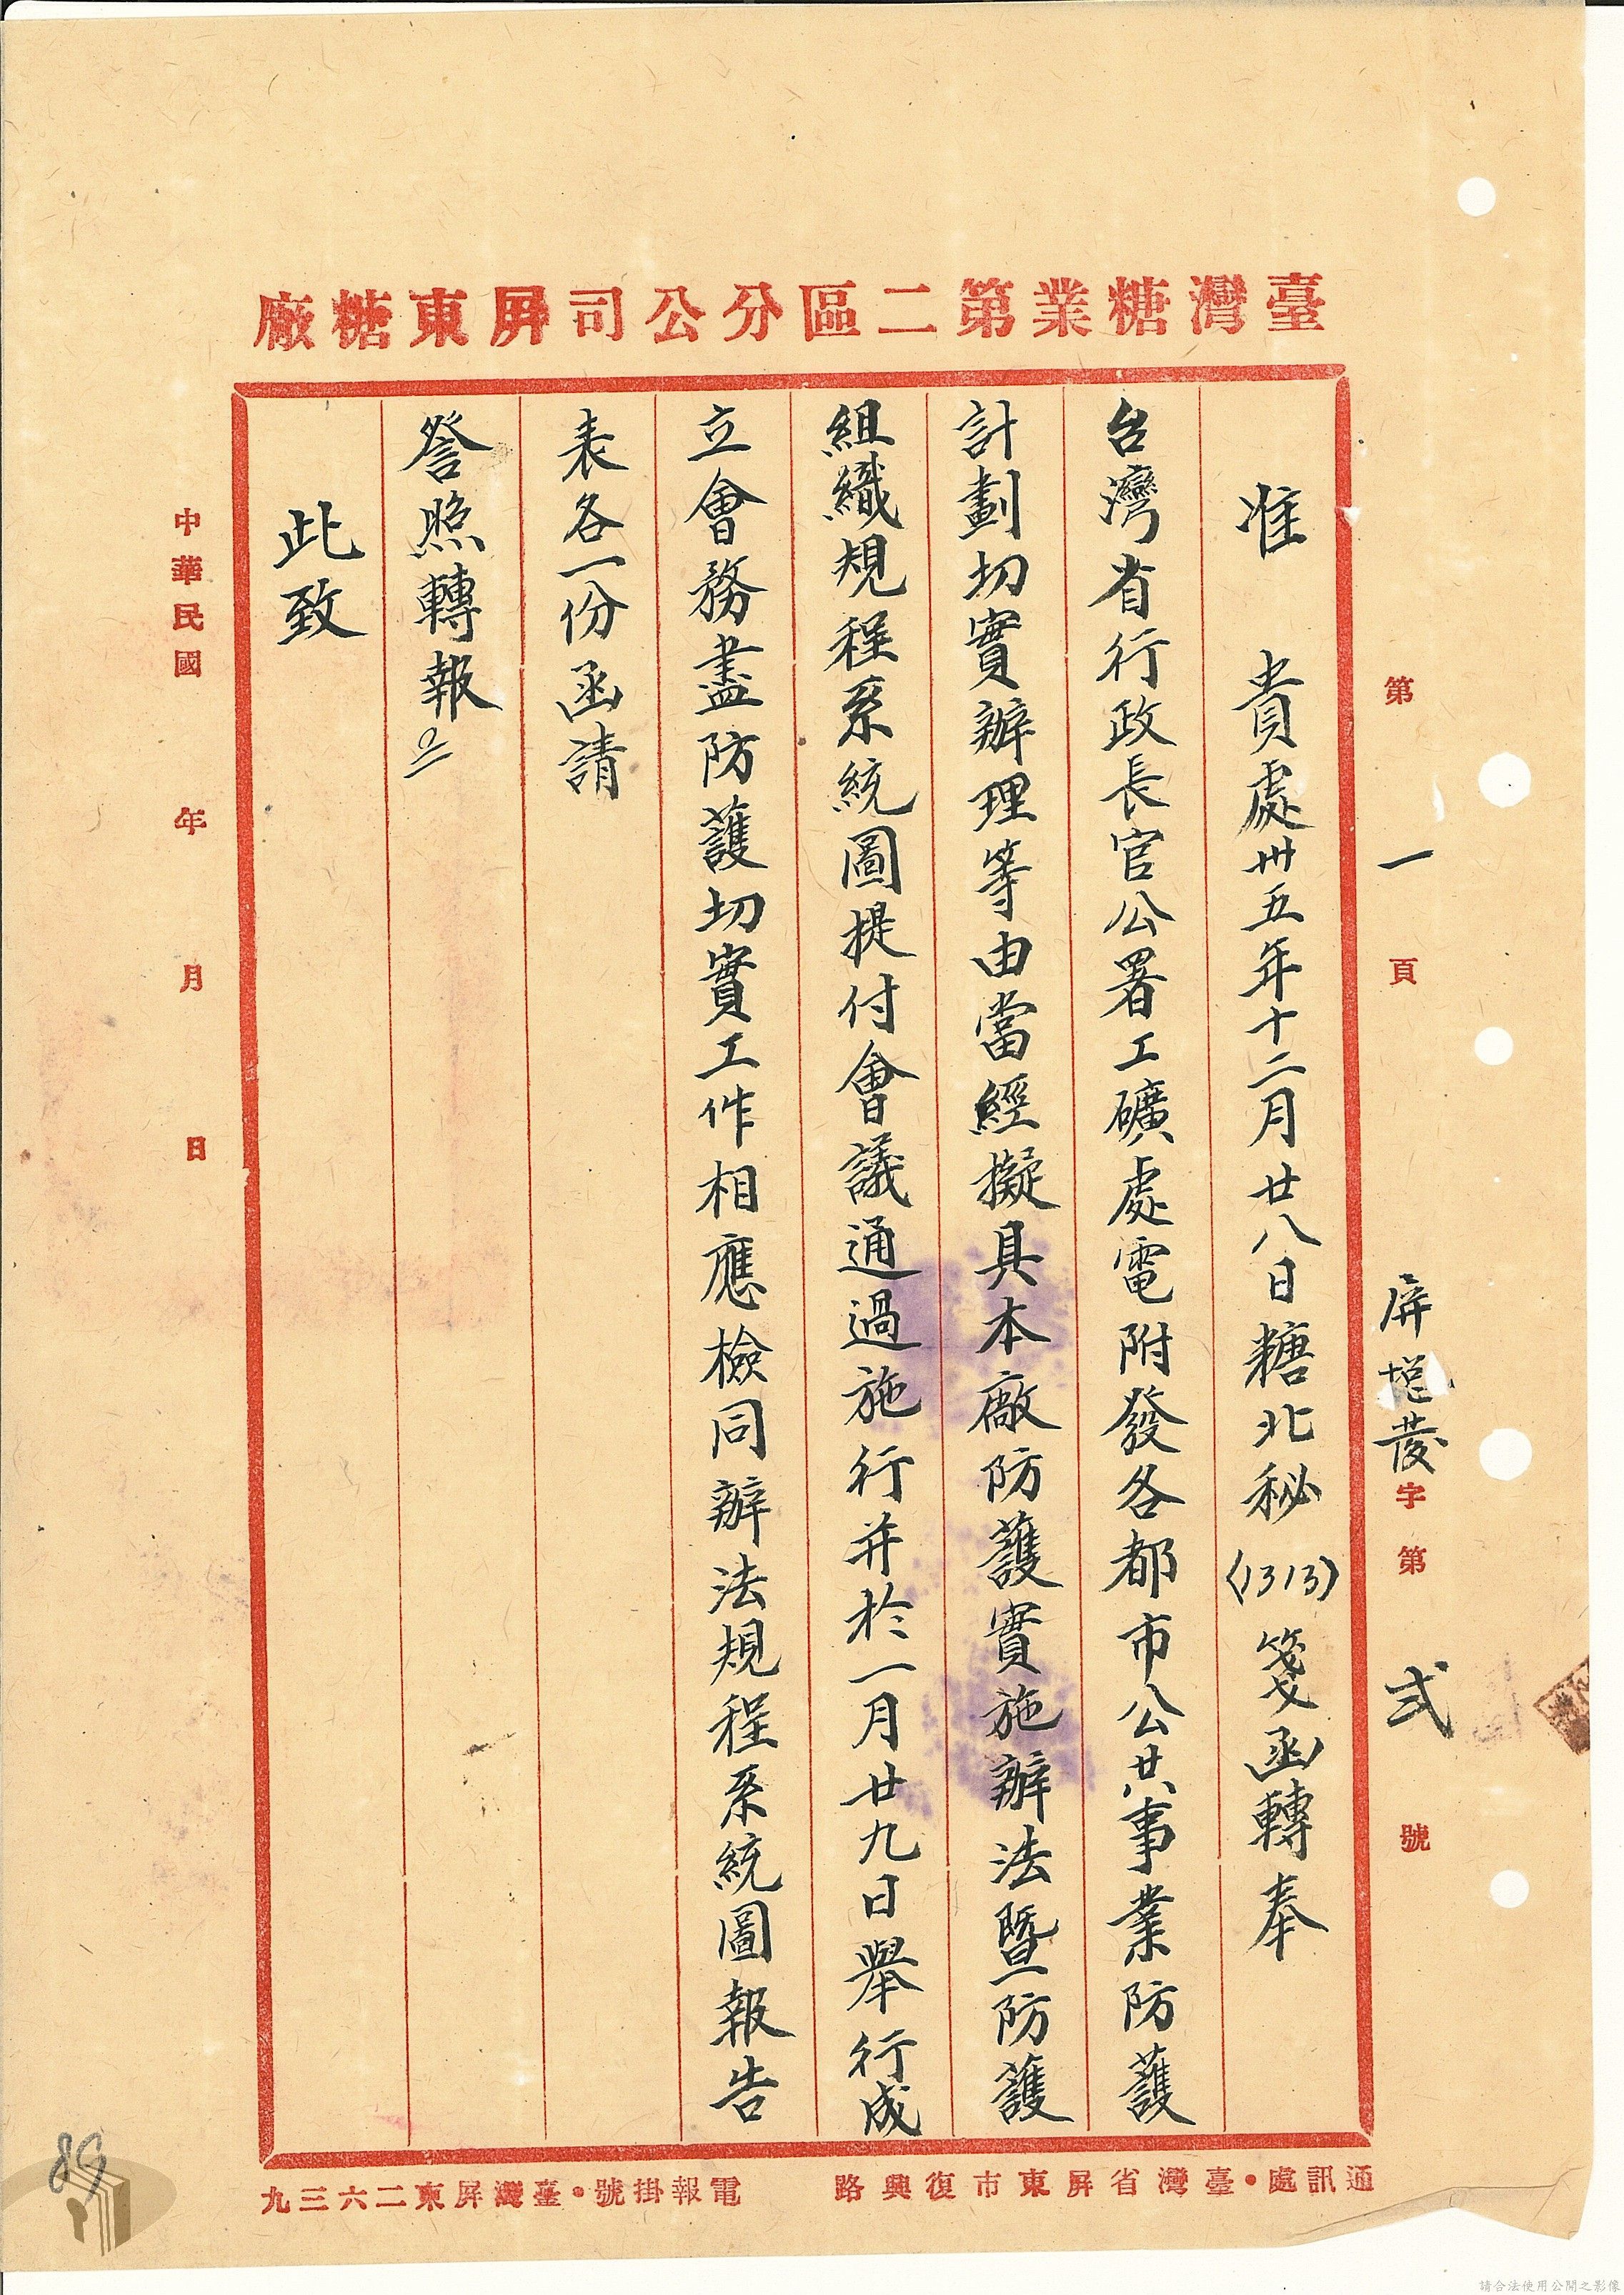 臺灣糖業第二區分公司屏東糖廠
第一頁
屏總發字第弍號
准　貴處卅五年十二月廿八日糖北秘（1313）箋函轉奉
台灣省行政長官公署工礦處電附發各都市公共事業防護
計劃切實辦理等由當經擬具本廠防護實施辦法暨防護
組織規程系統圖提付會議通過施行并於一月廿九日舉行成
立會務盡防護切實工作相應檢同辦法規程系統圖報告
表各一份函請
詧照轉報
此致
中華民國　年　月　日
通訊處・臺灣省屏東市復興路
電報掛號・臺灣屏東二六三九
89
請合法使用公開之影像